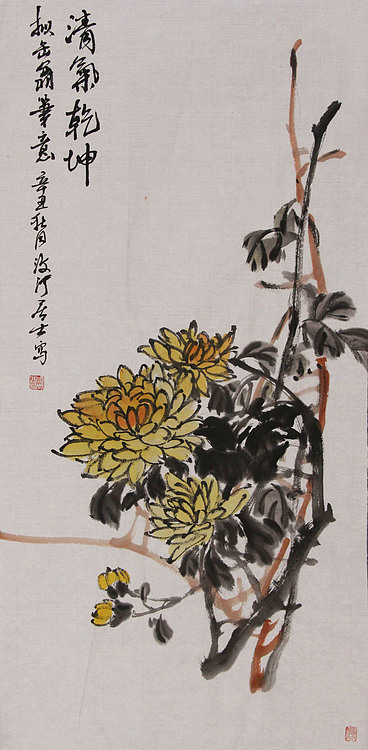 清氣乾坤
拟缶翁筆意辛丑秋月汶河居士寫